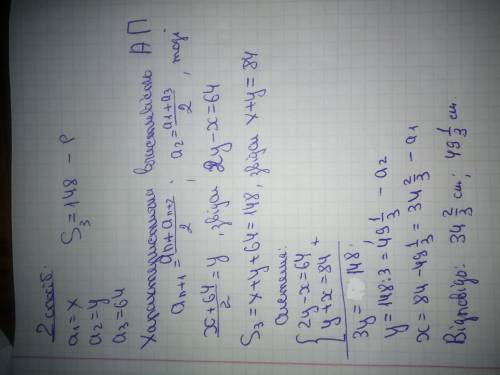 2 спосіб:
a₁ = x
a₂ = y        S₃ = 148 – P
a₃ = 64
Характеристична властивість АП
aₙ₊₁ = (aₙ + aₙ₊₂)/2 ; a₂ = (a₁ + a₃)/2 , тоді
(x + 64)/2 = y , звідси 2y – x = 64
S₃ = x + y + 64 = 148, звідси x + y = 84
Система:
{ 2y – x = 64
{ y + x = 84 +
3y = 148.
y = 148 : 3 = 49 1/3 – a₂
x = 84 – 49 1/3 = 34 2/3 – a₁
Відповідь: 34 2/3 см; 49 1/3 см.